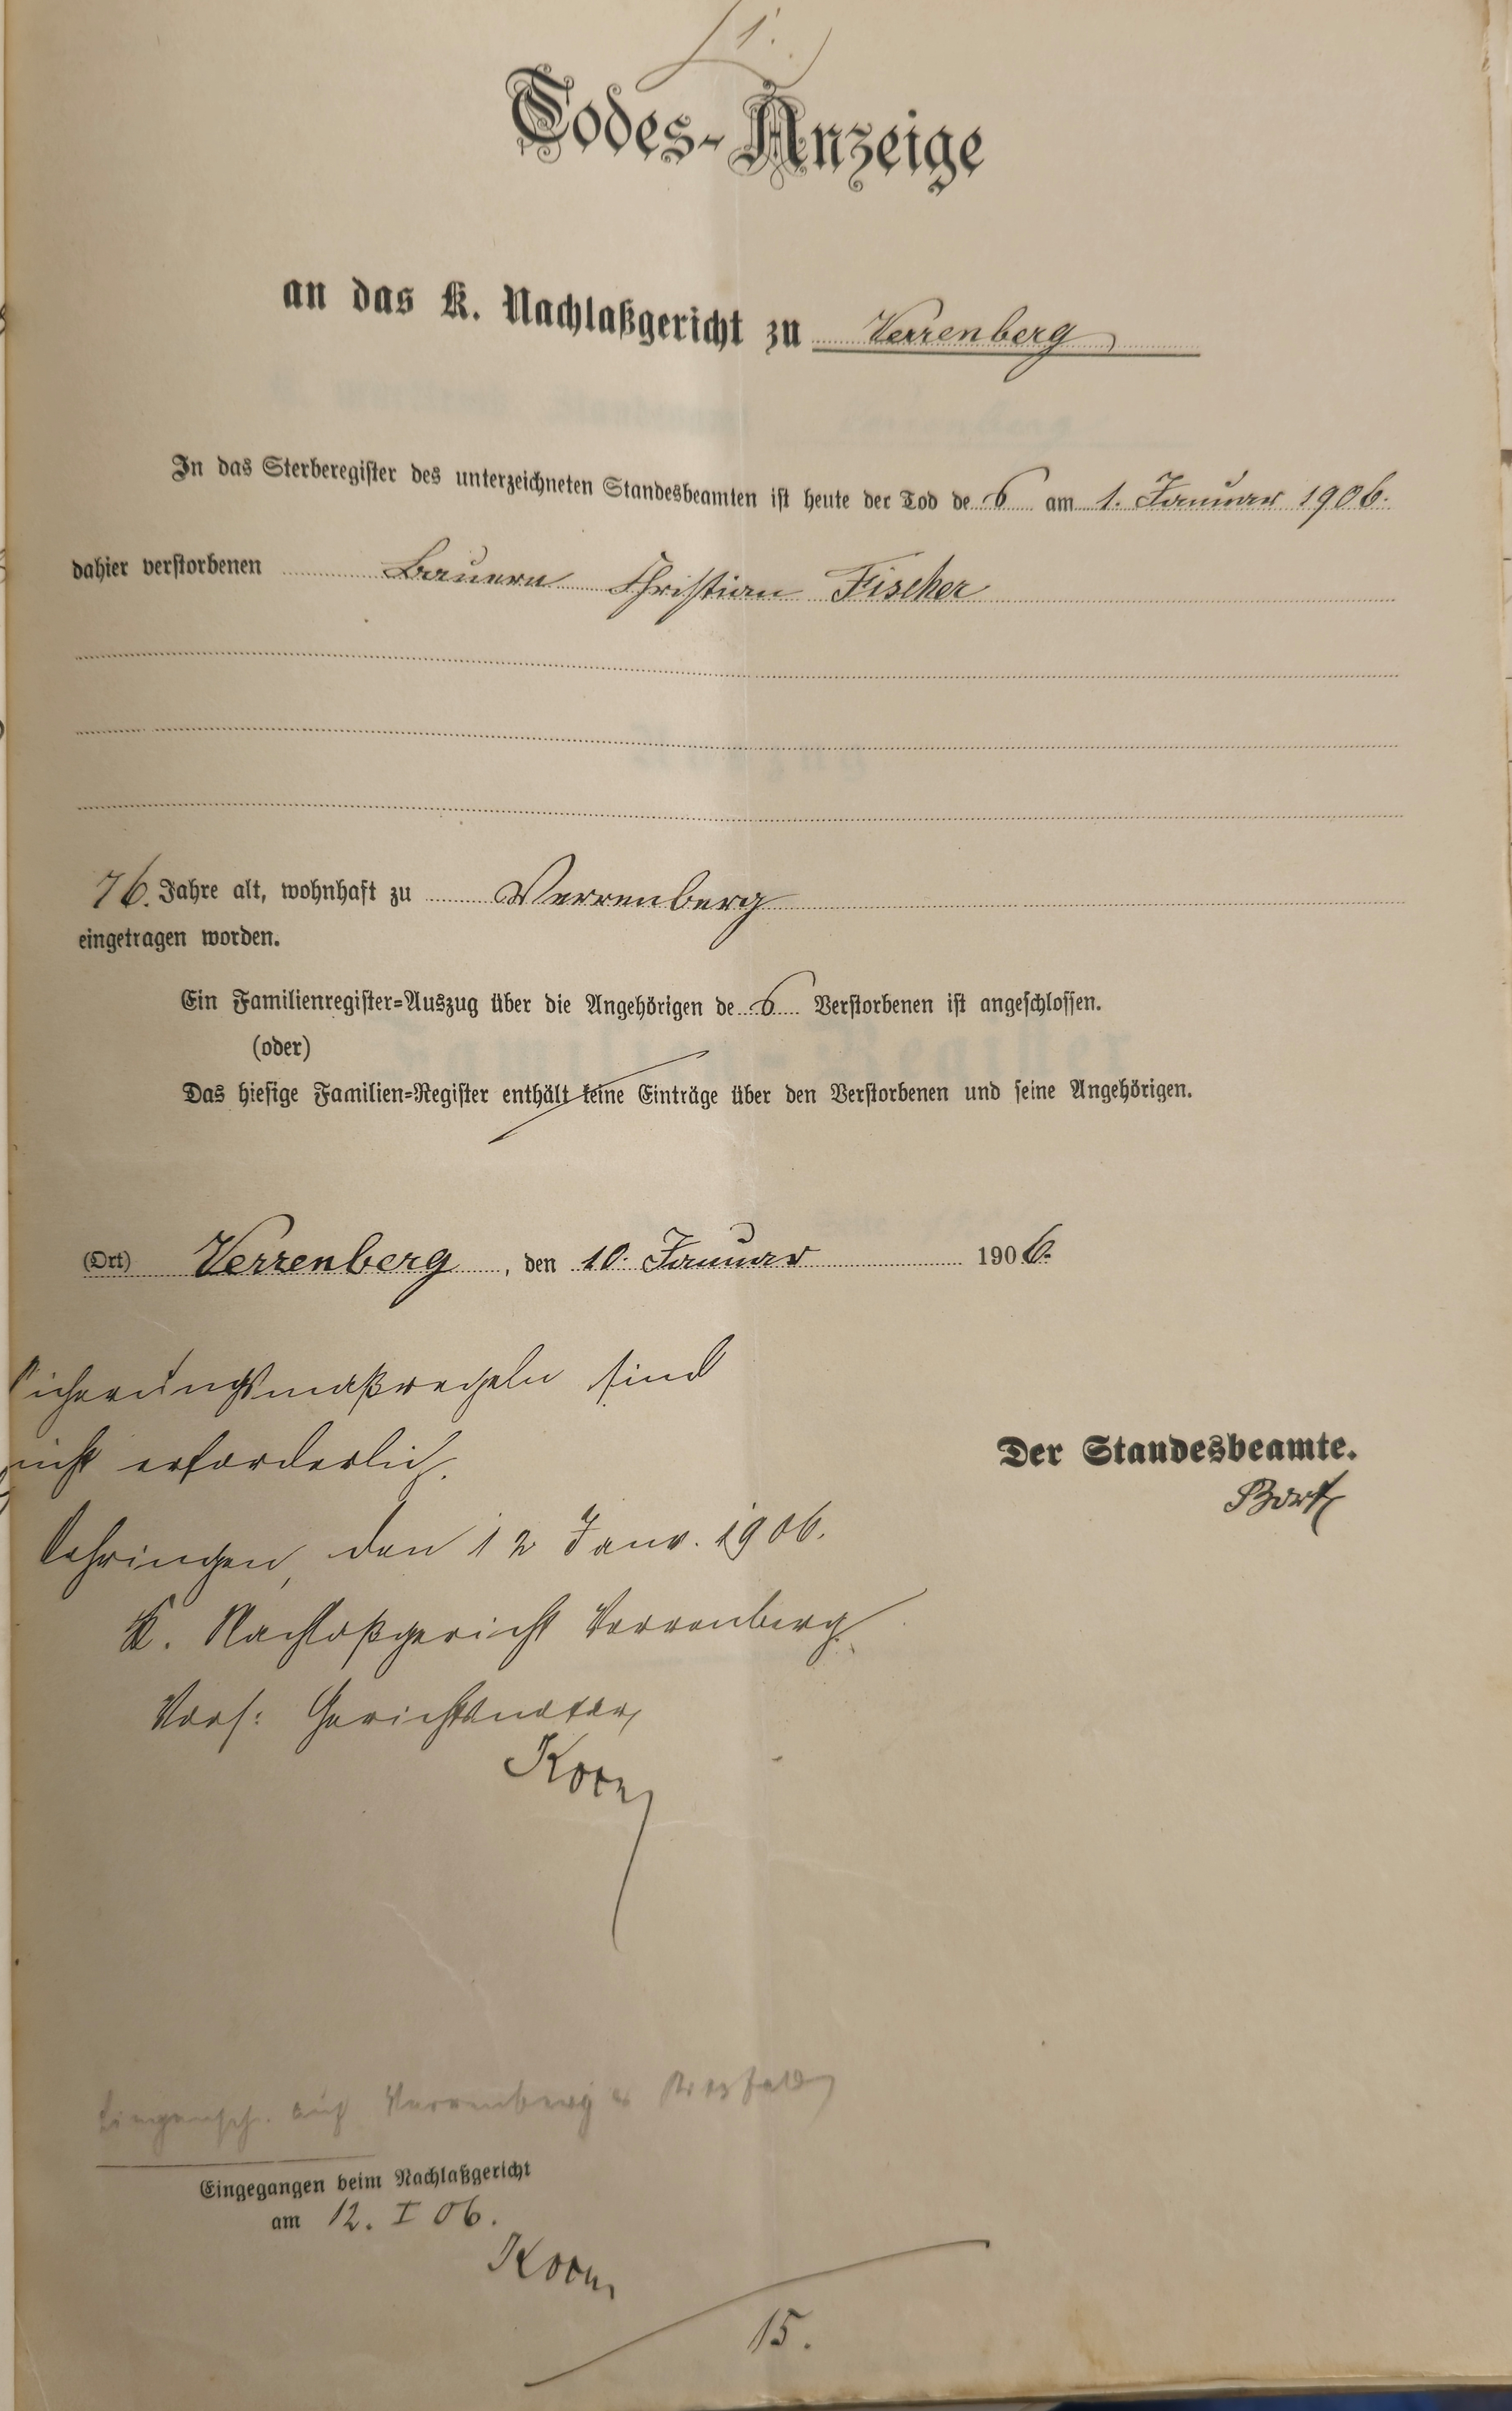 1.
Todes-Anzeige
an das K. Nachlaßgericht zu Verrenberg
In das Sterberegister des unterzeichneten Standesbeamten ist heute der Tod des am 1. Januar 1906.
dahier verstorbenen Bauern Christian Fischer
76. Jahre alt, wohnhaft zu Verrenberg
eingetragen worden.
Ein Familienregister=Auszug über die Angehörigen des Verstorbenen ist angeschlossen.
(oder)
Das hiesige Familien=Register enthält keine Einträge über den Verstorbenen und seine Angehörigen.
(Ort) Verrenberg, den 10. Januar 1906.
Sicherungsmaßregeln sind
nicht erforderlich.
Der Standesbeamte.
Oehringen, den 12 Janr. 1906.
K. Nachlaßgericht Verrenberg
Vors: Gerichtsnotar
Korn
Liegensch. auf Verrenberg u Bitzfeld
Eingegangen beim Nachlaßgericht
am 12. I 06.
Korn
15.